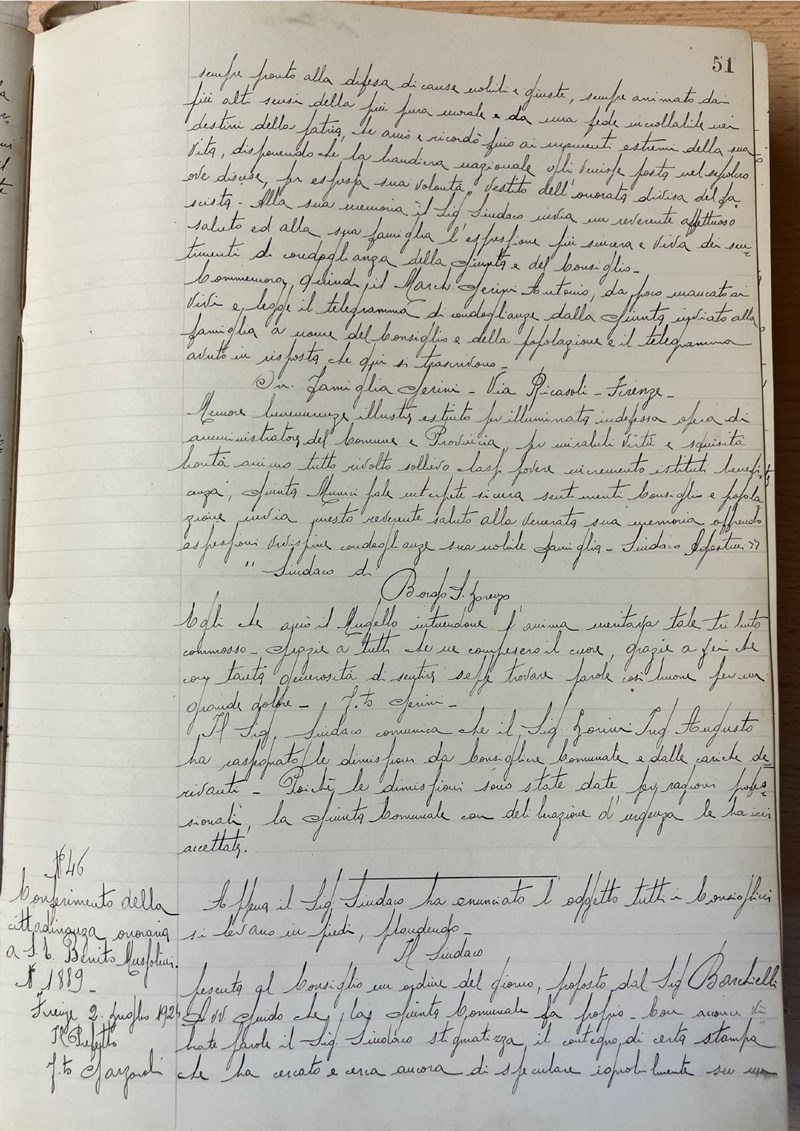 51
sempre pronto alla difesa di cause nobili e giuste, sempre animato dai
più alti sensi della più pura morale e da una fede incrollabile nei
destini della patria, che amò e ricordò fino ai momenti estremi della sua
vita, disponendo che la bandiera nazionale gli venisse posta nel sepolcro
ove discese, per espressa sua volontà, vestito dell'onorata divisa del fa-
scista - Alla sua memoria il Sig. Sindaco invia un reverente affettuoso
saluto ed alla sua famiglia l'espressione più sincera e viva dei sen-
timenti di condoglianza della Giunta e del Consiglio -
Commemora, quindi, il March. Gerini Antonio, da poco mancato ai
vivi e legge il telegramma di condoglianze dalla Giunta inviato alla
famiglia a nome del Consiglio e della popolazione e il telegramma
avuto in risposta che qui si trascrivono -
On. Famiglia Gerini - Via Ricasoli - Firenze -
Memore benemerenze illustre estinto per illuminata indefessa opera di
amministratore del Comune e Provincia, per mirabili virtù e squisita
bontà animo tutto rivolto sollievo classi povere incremento istituti benefi
cenza, Giunta Municipale interprete sincera sentimenti Consiglio e popola
zione invia questo reverente saluto alla venerata sua memoria offrendo
espressioni vivissime condoglianze sua nobile famiglia - Sindaco
" Sindaco di
Borgo S. Lorenzo
Egli che amò il Mugello intuendone l'anima meritava tale tributo
commosso - Grazie a tutti che ne compresero il cuore, grazie a Lei che
con tanta generosità di sentire seppe trovare parole così buone per un
grande dolore - F.to Gerini -
Il Sig. Sindaco comunica che il Sig. Ing. Augusto
ha rassegnato le dimissioni da Consigliere Comunale e dalle cariche de-
rivanti - Poichè le dimissioni sono state date per ragioni profes-
sionali, la Giunta Comunale con deliberazione d'urgenza le ha
accettate.
N° 46
Conferimento della
cittadinanza onoraria
a S.E. Benito Mussolini.
N° 1889 -
Firenze 2. Luglio 1924
Il Prefetto
F.to Garzaroli
Appena il Sig. Sindaco ha enunciato l'oggetto tutti i Consiglieri
si levano in piedi, plaudendo -
Il Sindaco
presenta al Consiglio un ordine del giorno, proposto dal Sig. Bacchicelli
Avv Guido che la Giunta Comunale fa proprio - Con acconce vi
brate parole il Sig. Sindaco stigmatizza il contegno di certa stampa
che ha cercato e cerca ancora di speculare ignobilmente su un